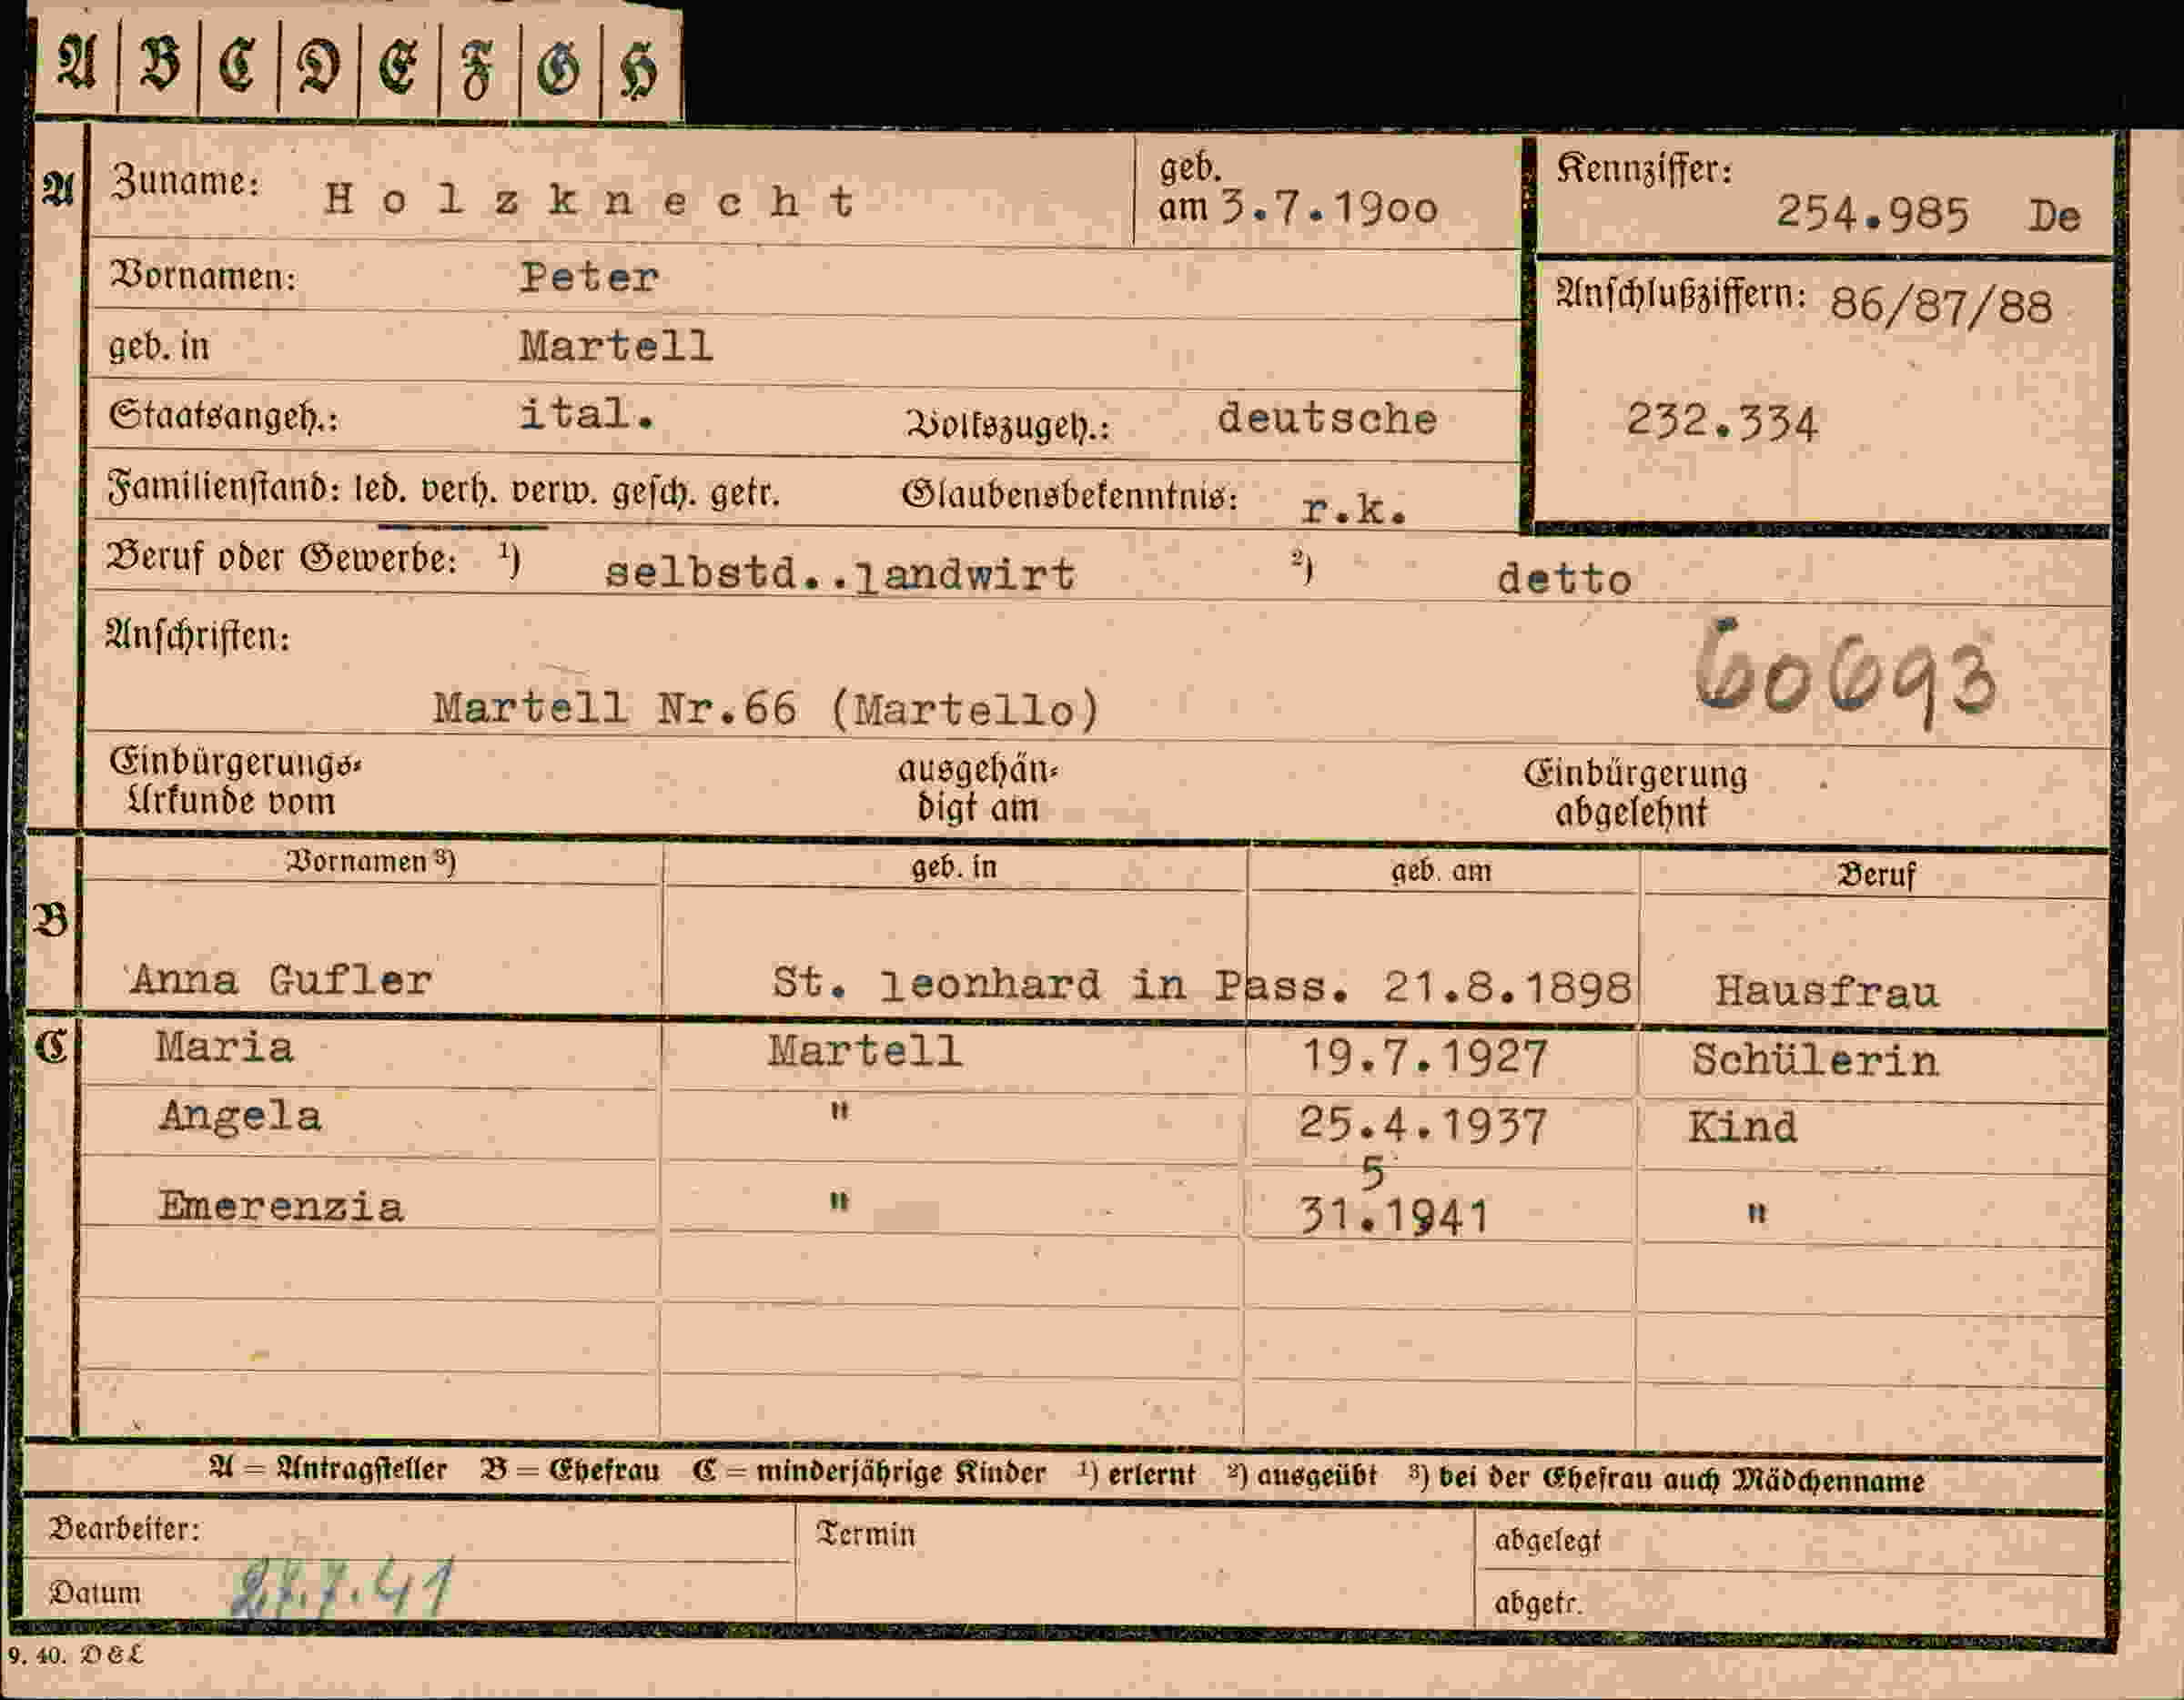 A B C D E F G H
A Zuname: Holzknecht geb. am 3.7.1900 Kennziffer: 254.985 De
Vornamen: Peter Anschlußziffern: 86/87/88
geb. in Martell
Staatsangeh.: ital. Volkszugeh.: deutsche 232.334
Familienstand: led. verh. verw. gesch. getr. Glaubensbekenntnis: r.k.
Beruf oder Gewerbe: ¹) selbstd..landwirt ²) detto
Anschriften: 60693
Martell Nr.66 (Martello)
Einbürgerungs- ausgehän- Einbürgerung
Urkunde vom digt am abgelehnt
Vornamen ³) geb. in geb. am Beruf
B
Anna Gufler St. leonhard in Pass. 21.8.1898 Hausfrau
C Maria Martell 19.7.1927 Schülerin
Angela " 25.4.1937 Kind
5
Emerenzia " 31.1941 "
A = Antragsteller B = Ehefrau C = minderjährige Kinder ¹) erlernt ²) ausgeübt ³) bei der Ehefrau auch Mädchenname
Bearbeiter: Termin abgelegt
Datum abgetr.
9. 40. D&L